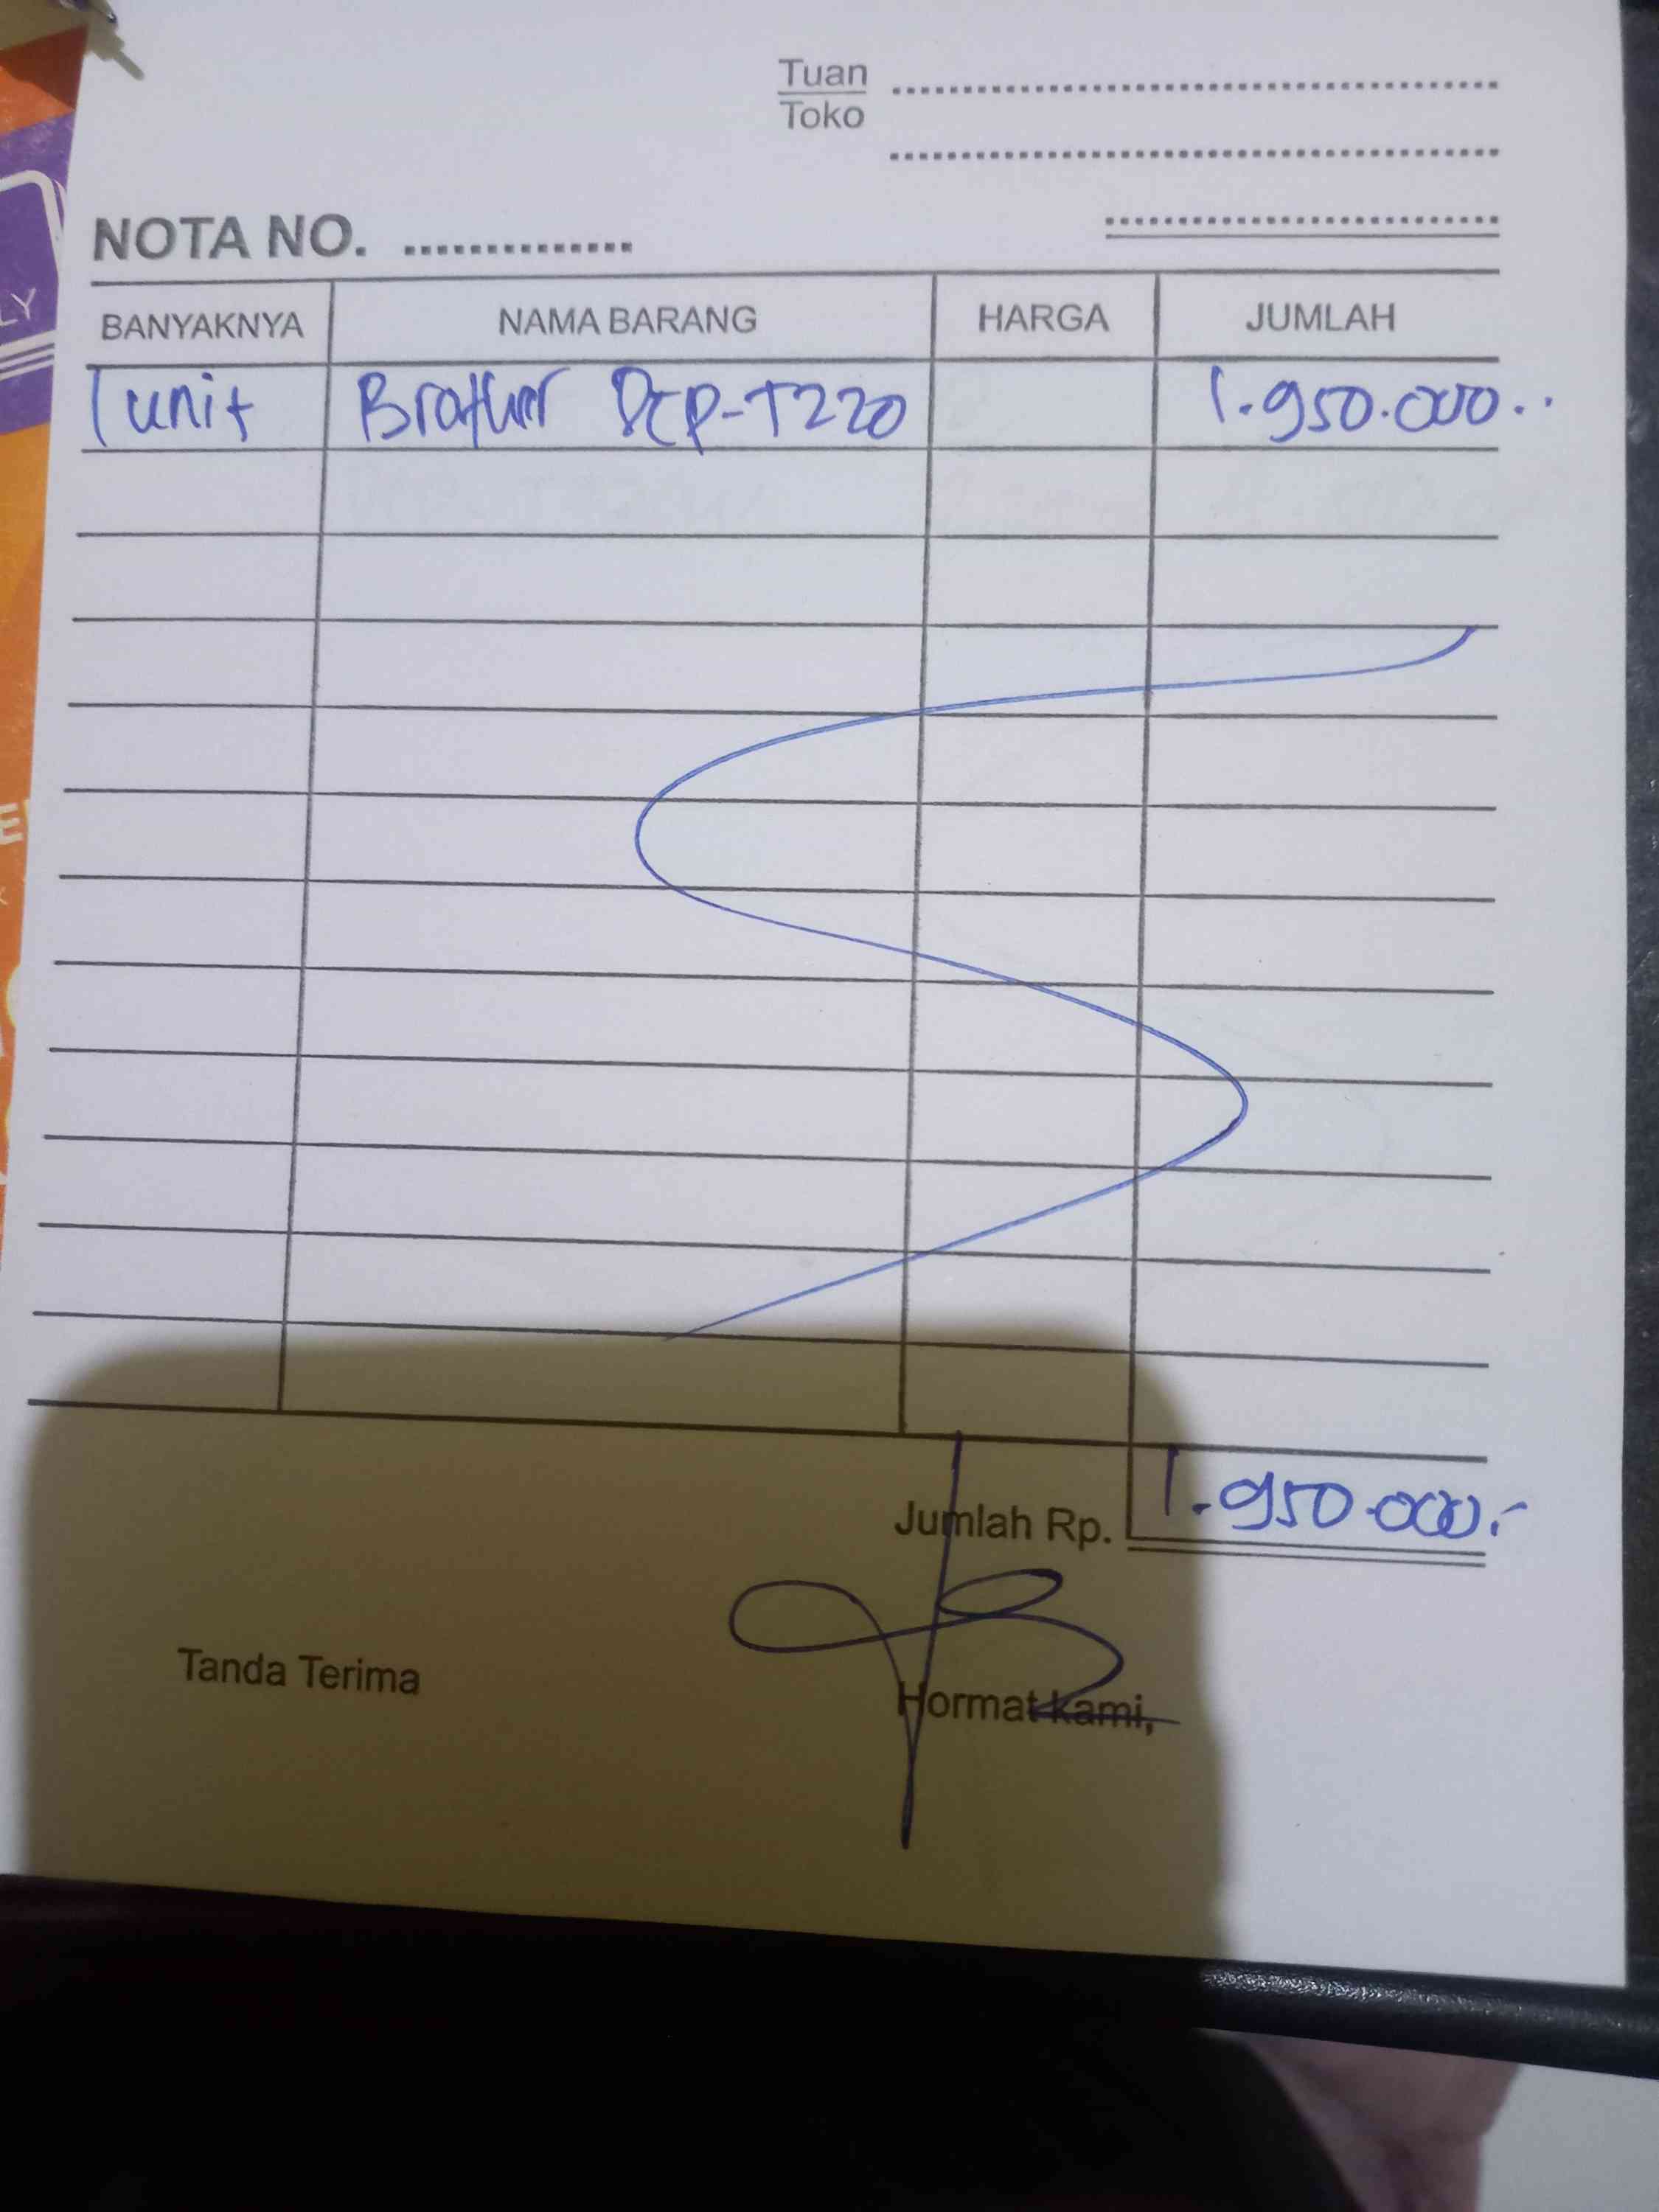 Tuan
Toko
NOTA NO. ..............
BANYAKNYA NAMA BARANG HARGA JUMLAH
1 unit Brother DCP-T220 1.950.000..
Jumlah Rp. 1.950.000.-
Tanda Terima Hormat kami,
LY
E